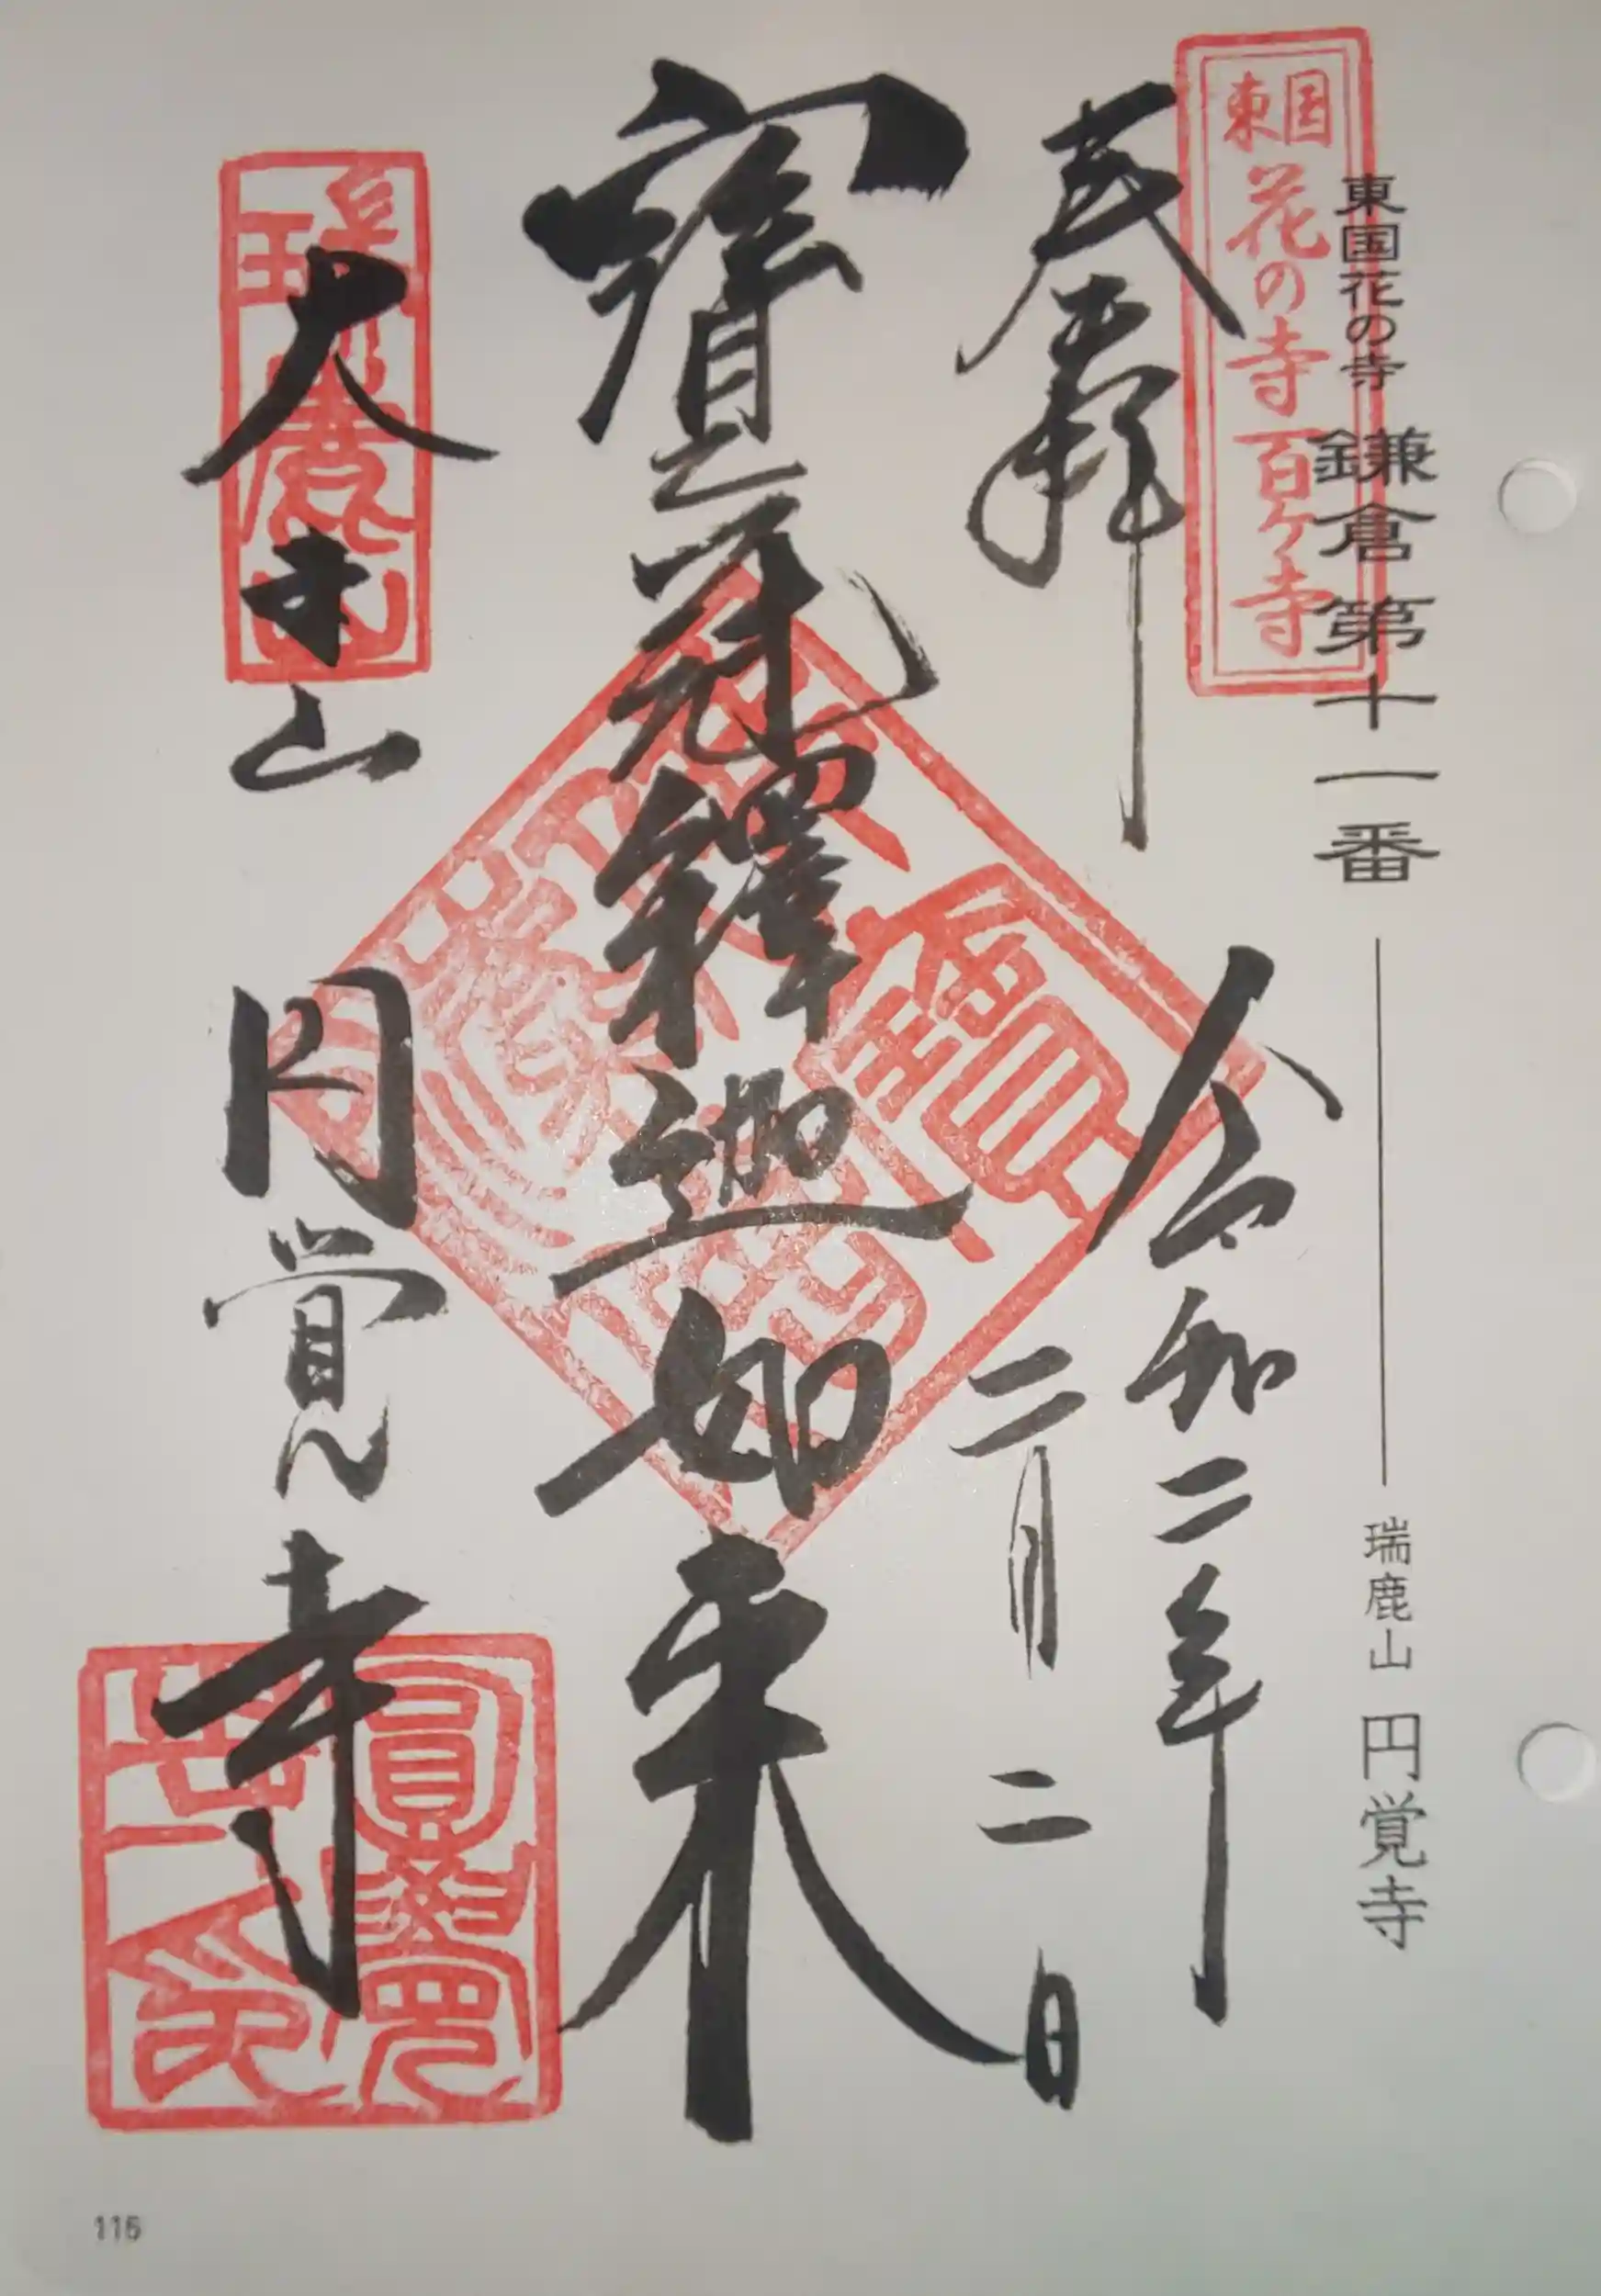 東国花の寺 鎌倉第十一番 瑞鹿山 円覚寺
東国
花の寺百ヶ寺
奉拝
令和二年
二月二日
寳冠釋迦如来
大本山
円覚寺
瑞鹿山
圓覺
寺印
115